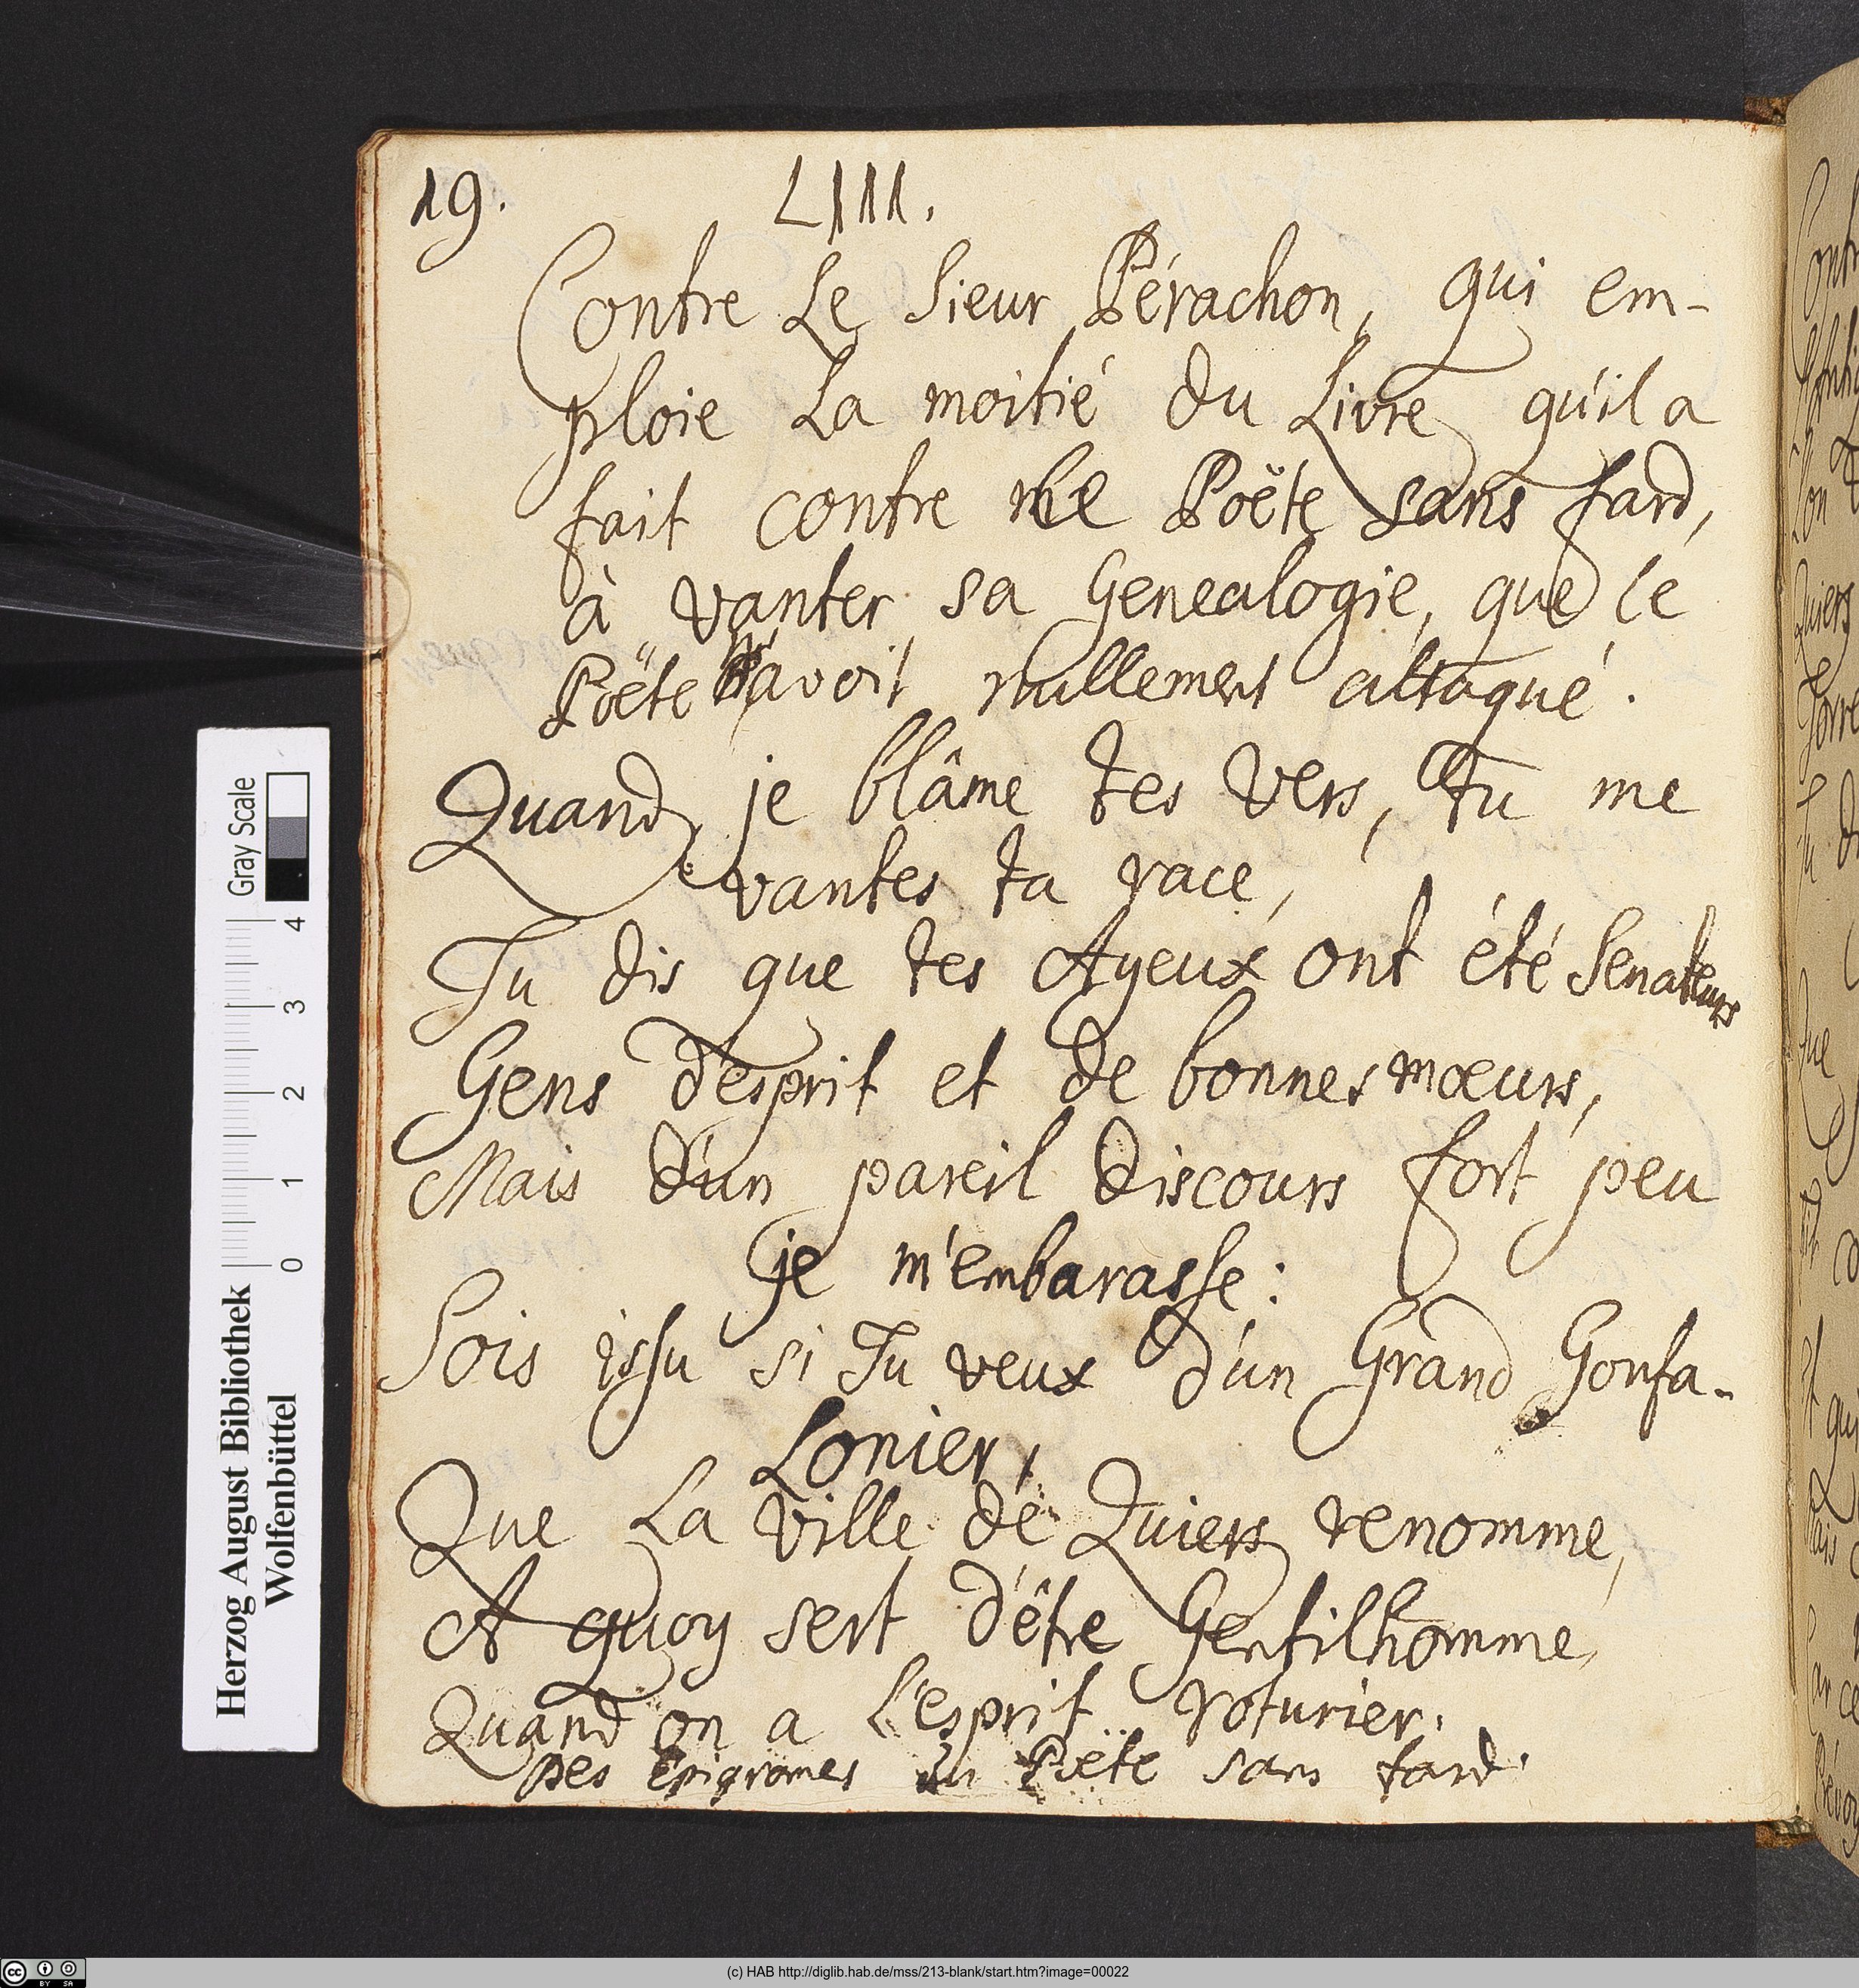 19.
LIII.
Contre Le Sieur Pérachon, qui em-
ploie La moitié du Livre qu'il a
fait contre le Poëte sans fard,
à vanter sa Genealogie, que le
Poëte n'avoit nullement attaqué.
Quand je blâme tes vers, tu me
vantes ta race,
Tu dis que tes Ayeux ont été Senateurs
Gens d'esprit et de bonnes mœurs,
Mais d'un pareil discours fort peu
je m'embarasse:
Sois issu si Tu veux d'un Grand Gonfa-
Lonier,
Que La ville de Quiers renomme,
A quoy sert d'être Gentilhomme,
Quand on a L'esprit roturier.
Des Epigrames du Poëte sans fard.
Gray Scale
0 1 2 3 4
Herzog August Bibliothek
Wolfenbüttel
(c) HAB http://diglib.hab.de/mss/213-blank/start.htm?image=00022
cc BY SA